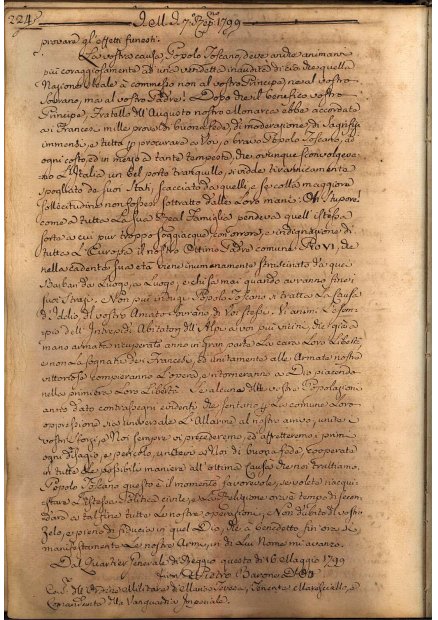 224
A dì 7 Sep. 1799
provare gl'effetti funesti.
La vostra causa Popolo Toscano, deve anche animarvi
più coraggiosamente ad una vendetta inaudita di ciò che quella
Nazione à commesso non al vostro Principe, ne al vostro
Sovrano, ma al vostro Padre. Dopo che il benefico vostro
Principe, Fratello dell'Augusto nostro Monarca ebbe accordate
ai Francesi mille prove di buona fede, di moderazione, di Sagrifizi
immensi, e tutto p procurare a Voi, o bravo Popolo Toscano, ad
ogni costo, ed in mezzo a tante tempeste, che ovunque sconvolgeva
no l'Italia un bel porto tranquillo, si vidde tirannicamente
spogliato de suoi Stati, scacciato da quelli, e se colla maggiore
sollecitudine non fosse sottratto dalle loro mani. Oh stupore!
come a tutta la sua Real Famiglia pendeva quell'istessa
sorte a cui pur troppo soggiacque con orrore, e indignazione di
tutta l'Europa il nostro Ottimo Padre comune Pio VI, che
nella cadente sua età viene inumanamente strascinato da que
Barbari da Luogo, a Luogo, e chi sa mai quando avranno fine i
suoi Strazi. Non più indugi Popolo Toscano si tratta La Causa
di Iddio, del vostro Amato Sovrano di Voi stessi. Vi animi l'esem=
pio dell'Intrepidi Abitatori dell'Alpi a voi più vicini, che quasi a
mano armata ricuperato anno in gran parte La cara Loro Libertà,
e non La sognata dei Francesi, ed unitamente alle Armate nostre
vittoriose compieranno L'opera, e ritorneranno a Dio piacendo
nella primiera Loro Libertà. Se alcune delle vostre Popolazioni
anno dato contrassegni evidenti, che sentano p La comune Loro
oppressione, sia universale L'Allarme al nostro arrivo, unite i
vostri sforzi, e Noi sempre vi precederemo, ed affretteremo i primi
ogni disagio, e pericolo, unitevi a Noi di buona fede, cooperate
in tutte Le possibili maniere all'ottima Causa che noi trattiamo.
Popolo Toscano questo è il momento favorevole, se volete riacqui=
stare L'istessa Politica civile, e La Religione ora è tempo di secon=
dare a tal fine tutte Le nostre operazioni, Non dubito del vostro
Zelo, e pieno di fiducia in quel Dio, che à benedetto fin'ora sì
manifestamente Le nostre Armi, in di Lui Nome mi avanzo.
Dal Quartier Generale di Reggio questo dì 16 Maggio 1799
Pietro Barone
Cav. dell'Ordine Militare di Maria Teresa, Tenente Maresciallo, e
Comandante della Vanguardia Imperiale.